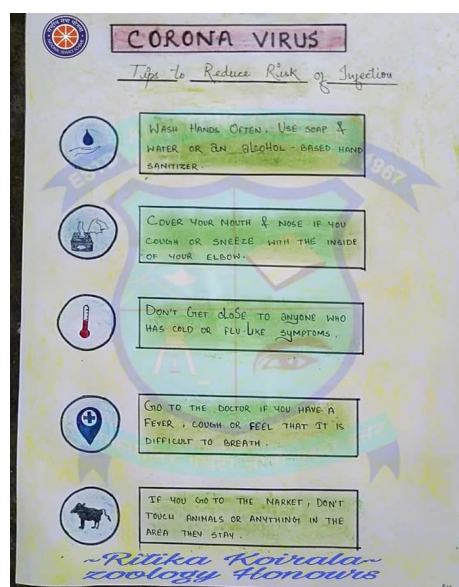 CORONA VIRUS
Tips to Reduce Risk of Infection
WASH HANDS OFTEN. USE SOAP &
WATER OR an alcoHOL-BASED HAND
SANITIZER.
COVER YOUR MOUTH & NOSE IF YOU
COUGH OR SNEEZE WITH THE INSIDE
OF YOUR ELBOW.
DON'T GET cLoSE TO anyonE WHO
HAS COLD OR FLU-LIKE SYMPTOMS.
GO TO THE DOCTOR IF YOU HAVE A
FEVER, COUGH OR FEEL THAT IT IS
DIFFICULT TO BREATH.
IF YOU GO TO THE MARKET, DON'T
TOUCH ANIMALS OR ANYTHING IN THE
AREA THEY STAY.
~Ritika Koirala~
zoology Honours
1967